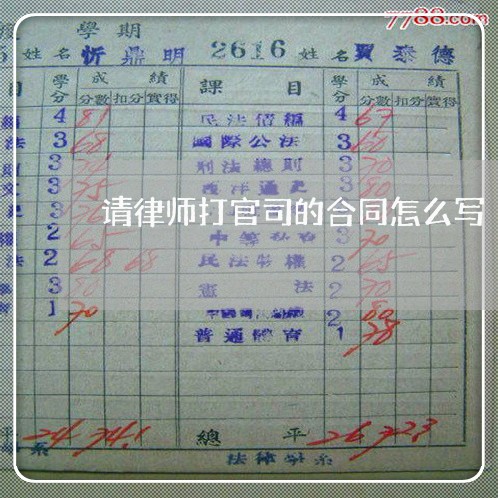 7788.com
學期
姓名 忻鼎明 2616 姓名 賈泰德
目 學分 成績 課目 學分 成績
分數 扣分 實得 分數 扣分 實得
4 81 民法債編 4 67
法 3 68 國際公法 3 60
3 刑法總則 3 70
3 75 西洋通史 3 80
請律师打官司的合同怎么写
2 65 3 70
法 2 68 68 民法物權 2 65
3 80 憲法 2 70
1 70 2 80
普通體育 1 78
平 24 74.1 總平 26 72.3
系 法律學系